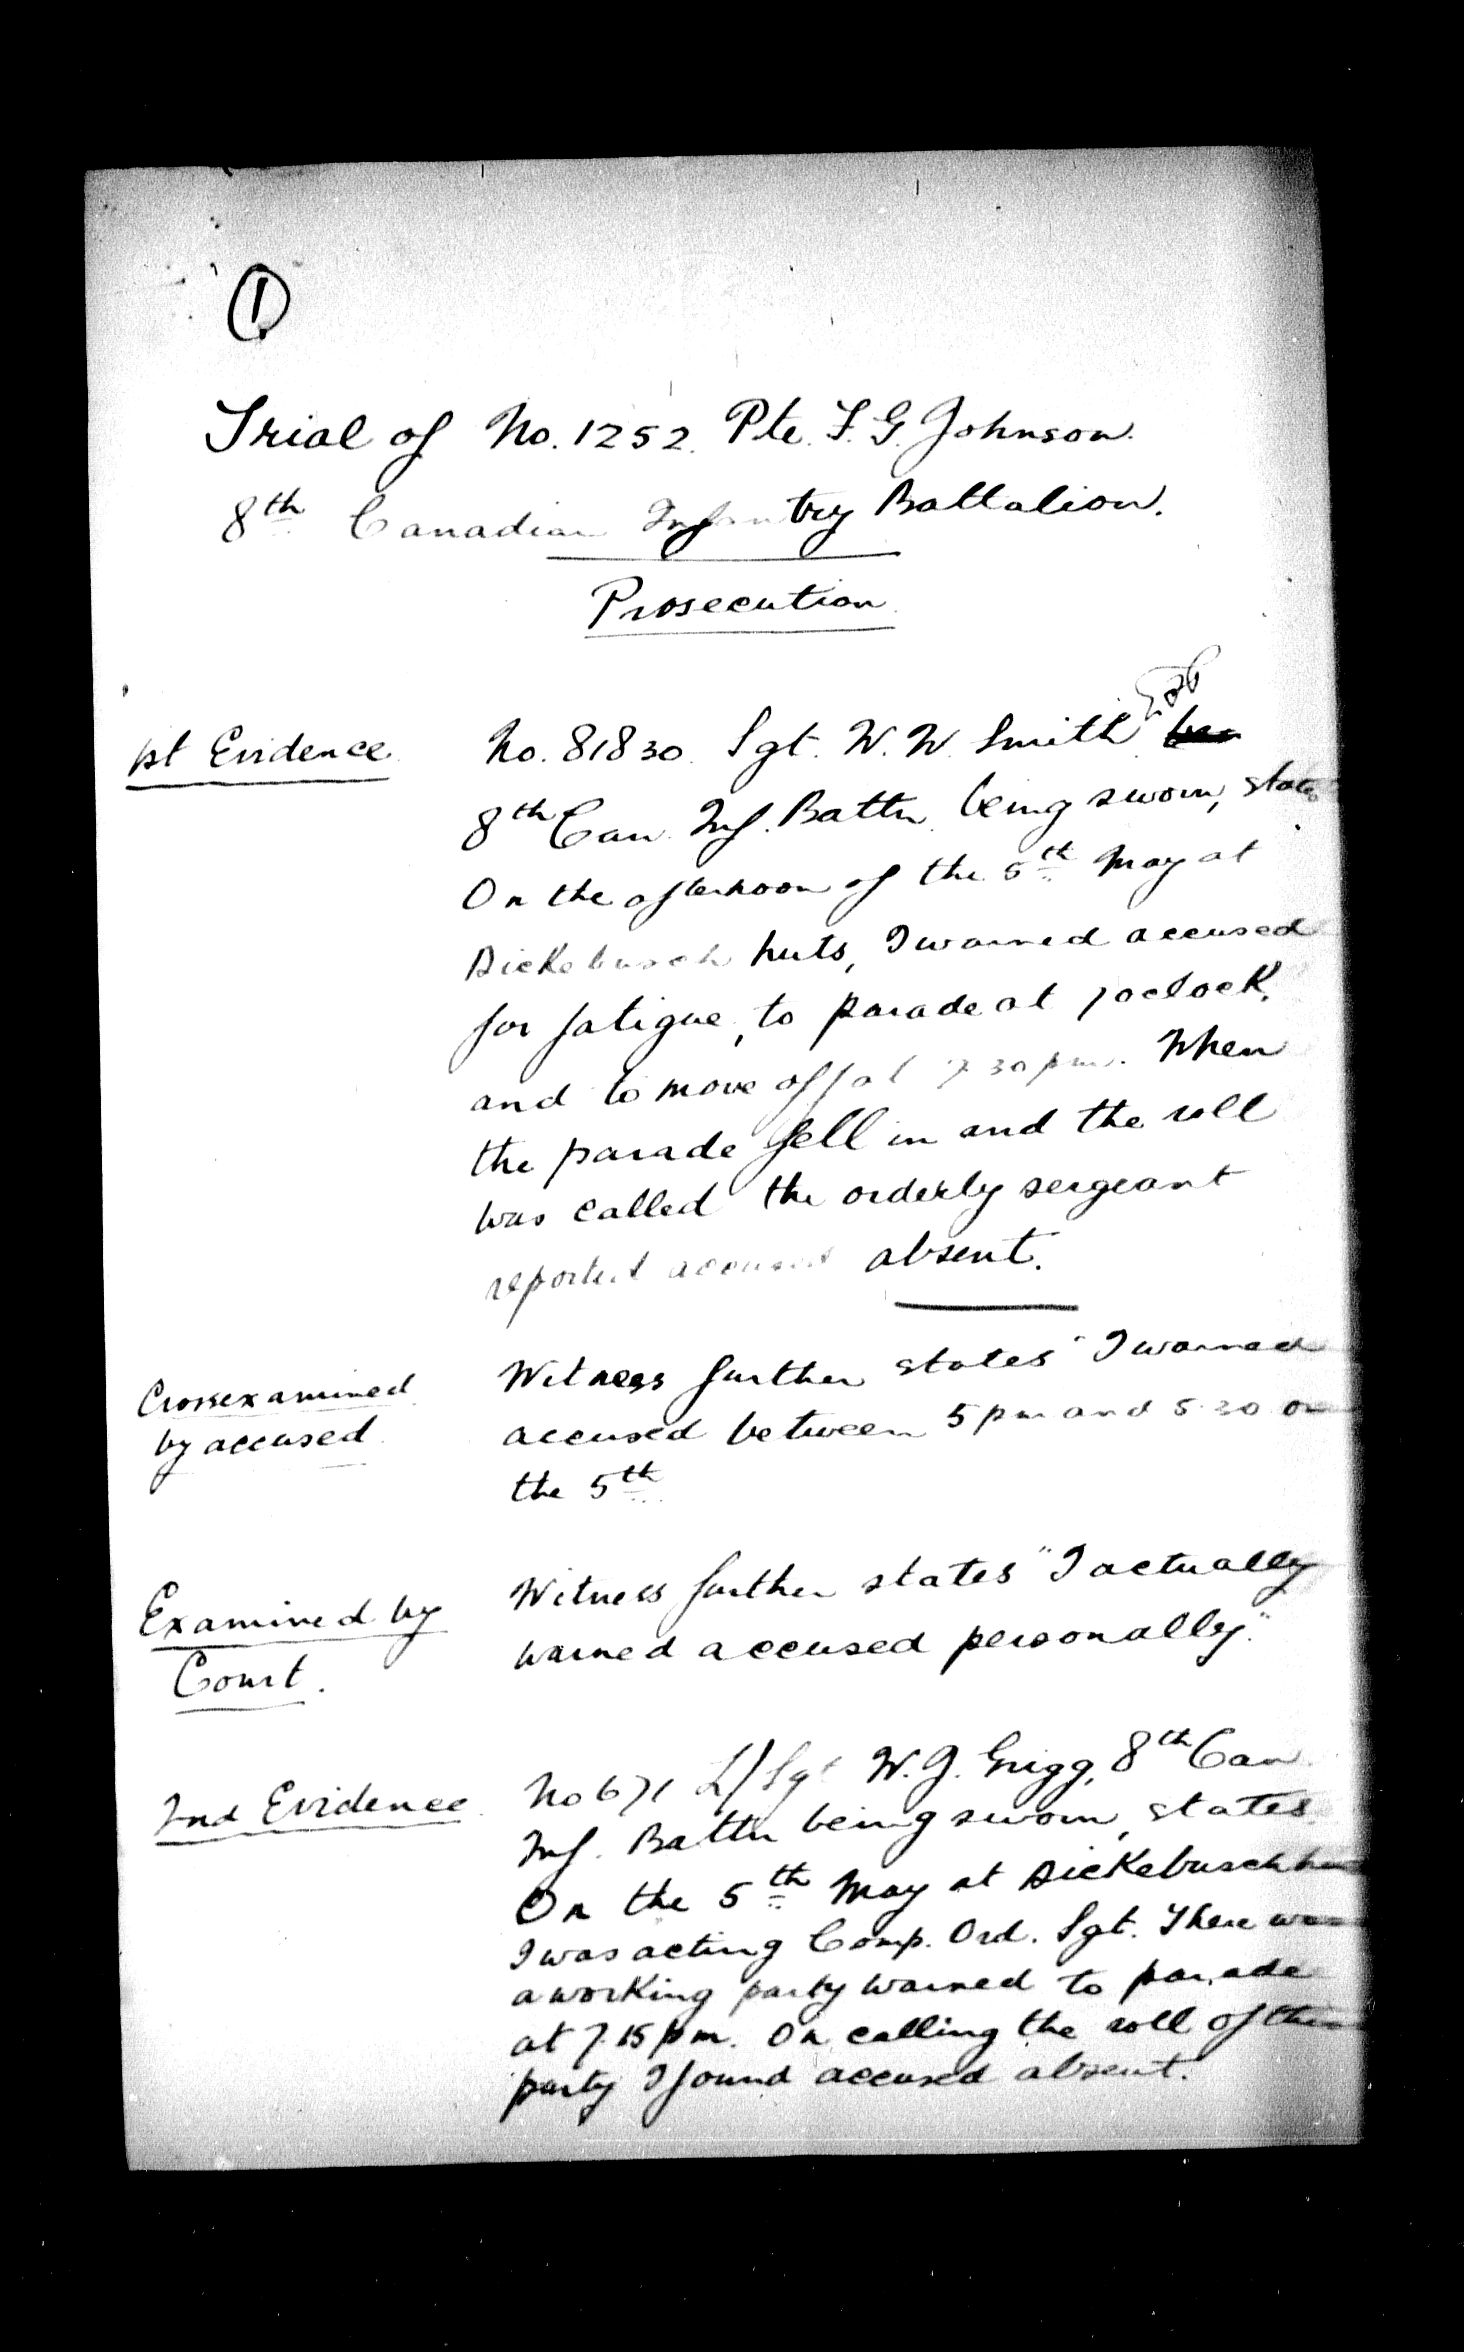 1
Trial of No. 1252. Pte. F. G. Johnson.
8th Canadian Infantry Battalion.
Prosecution
1st Evidence
No. 81830. Sgt. W. W. Smith
8th Can. Inf. Battn. being sworn, states
On the afternoon of the 5th May at
Dickebusch huts, I warned accused
for fatigue, to parade at 7 oclock,
and to move off at 7.30 pm. When
the parade fell in and the roll
was called the orderly sergeant
reported accused absent.
Crossexamined
by accused
Witness further states "I warned
accused between 5 pm and 5.30 on
the 5th
Examined by
Court.
Witness further states "I actually
warned accused personally."
2nd Evidence
No 671 L/Sgt W. J. Grigg, 8th Can
Inf. Battn being sworn, states
On the 5th May at Dickebusch
I was acting Comp. Ord. Sgt. There was
a working party warned to parade
at 7.15 pm. On calling the roll of this
party I found accused absent.